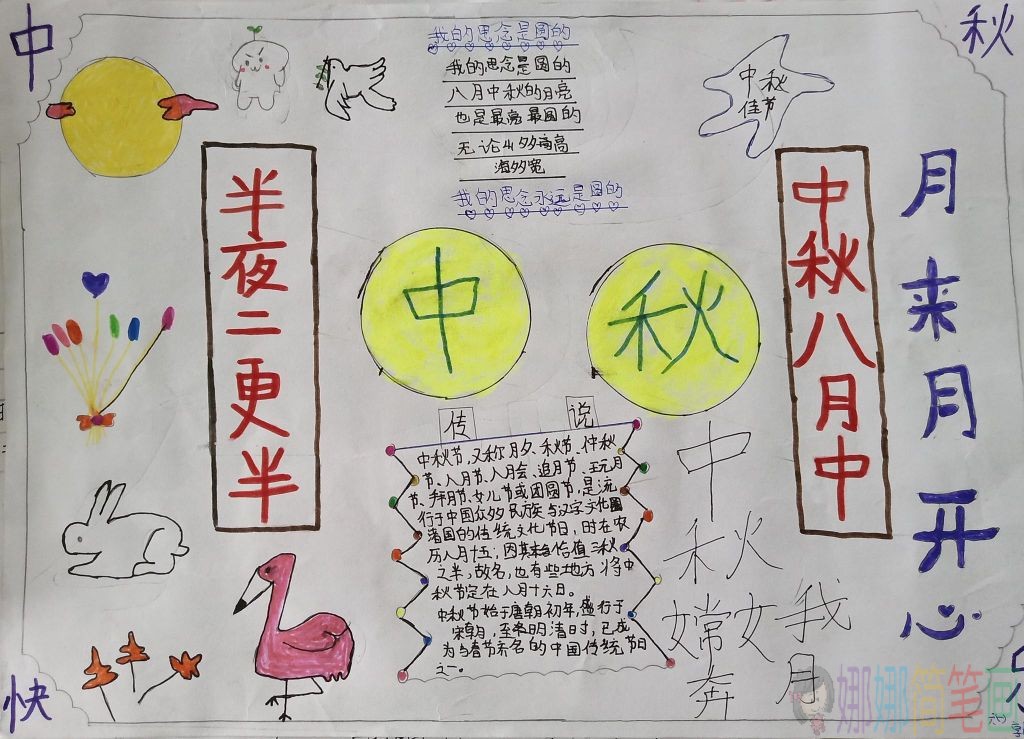 中
秋
我的思念是圆的
我的思念是圆的
八月中秋的月亮
也是最亮最圆的
无论山多高
海多宽
我的思念永远是圆的
中秋
佳节
半夜二更半
中秋八月中
月来月开心
中
秋
传说
中秋节,又称月夕、秋节、仲秋
节、八月节、八月会、追月节、玩月
节、拜月节、女儿节或团圆节,是流
行于中国众多民族与汉字文化圈
诸国的传统文化节日,时在农
历八月十五;因其恰值三秋
之半,故名,也有些地方将中
秋节定在八月十六日。
中秋节始于唐朝初年,盛行于
宋朝,至明清时,已成
为与春节齐名的中国传统节日
之一。
中秋
嫦女我
奔月
快
娜娜简笔画